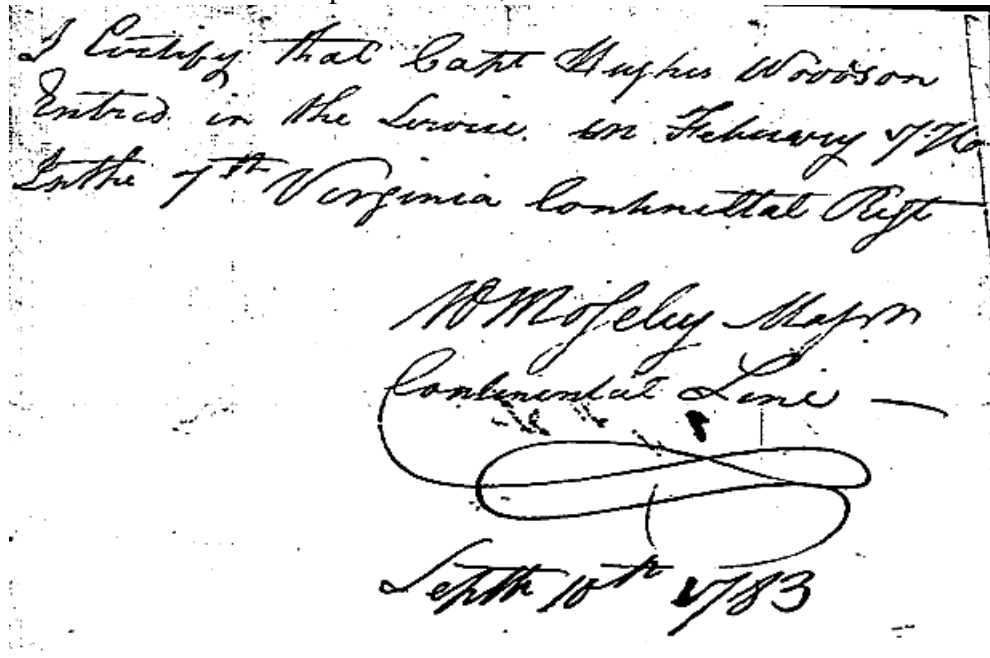 I Certify that Capt Hughes Woodson
Entred in the Service in February 1776
In the 7th Virginia Continettal Regt
W Moseley Major
Continental Line
Septbr 10th 1783